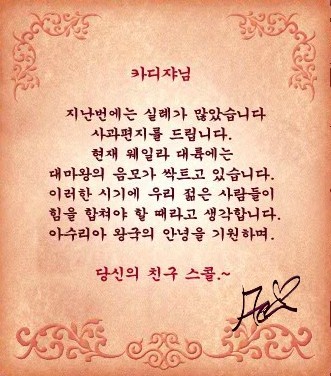 카디쟈님
지난번에는 실례가 많았습니다
사과편지를 드립니다.
현재 웨일라 대륙에는
대마왕의 음모가 싹트고 있습니다.
이러한 시기에 우리 젊은 사람들이
힘을 합쳐야 할 때라고 생각합니다.
아수리아 왕국의 안녕을 기원하며.
당신의 친구 스콜.~